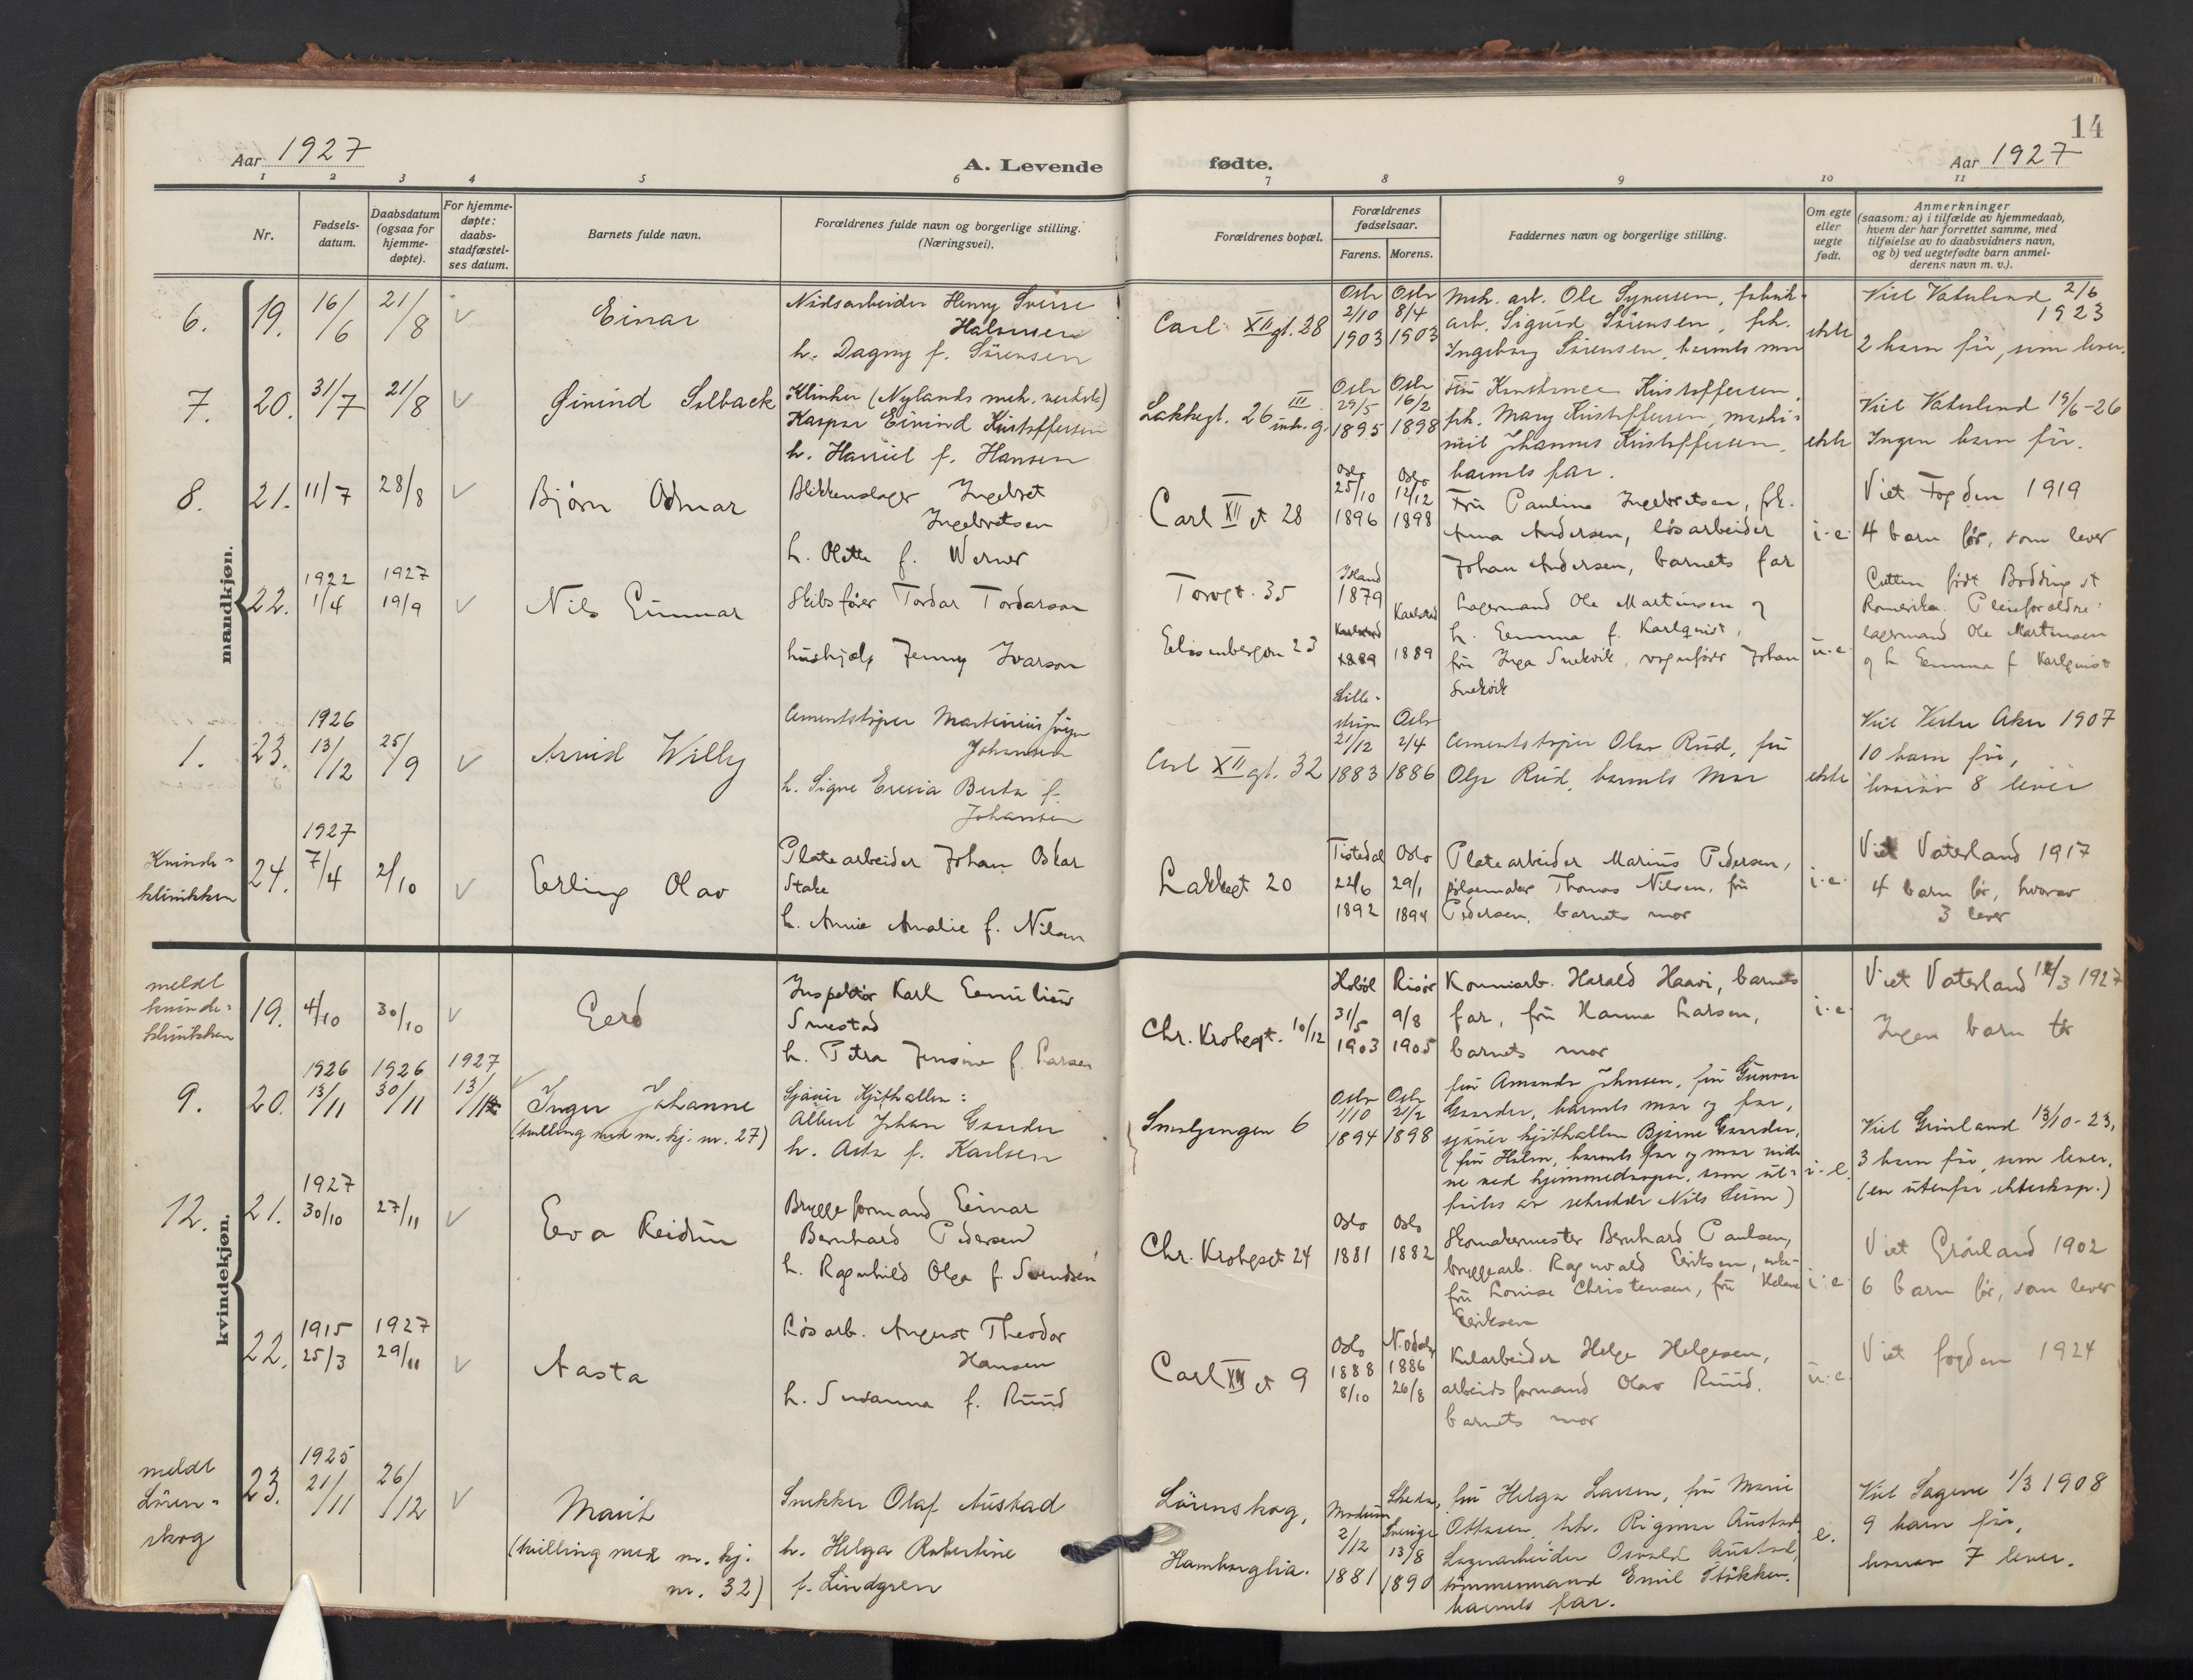 14
Aar 1927
A. Levende
fødte.
Aar 1927
1 2 3 4 5 6 7 8 9 10 11
Nr.
Fødsels-
datum.
Daabsdatum
(ogsaa for
hjemme-
døpte).
For hjemme-
døpte:
daabs-
stadfæstel-
ses datum.
Barnets fulde navn.
Forældrenes fulde navn og borgerlige stilling.
(Næringsvei).
Forældrenes bopæl.
Forældrenes
fødselsaar.
Farens. Morens.
Faddernes navn og borgerlige stilling.
Om egte
eller
uegte
født.
Anmerkninger
(saasom: a) i tilfælde av hjemmedaab,
hvem der har forrettet samme, med
tilføielse av to daabsvidners navn,
og b) ved uegtefødte barn anmel-
derens navn m. v.).
mandkjøn.
6. 19. 16/6 21/8 ✓
Einar
Henny
Halvorsen
h. Dagny f. Sörensen
Carl XII gt. 28
Oslo 2/10 1903
Oslo 8/4 1903
Mek. arb. Ole Synersen, fabrik-
arb. Sigurd Sörensen, frk.
Ingeborg Sörensen, barnets mor
ekte
Viet Vaterland 2/6
1923
2 barn för, som lever.
7. 20. 31/7 21/8 ✓
Øivind Solback
Klinker (Nylands mek. verksted)
Kaspar Eivind Kristoffersen
h. Harriet f. Hansen
Lakkegt. 26 III indr. g.
Oslo 29/5 1895
Oslo 16/2 1898
Fru Kristoffersen,
frk. Mary Kristoffersen, maski-
nist Johannes Kristoffersen,
barnets far.
ekte
Viet Vaterland 19/6-26
Ingen barn för.
8. 21. 11/7 28/8 ✓
Bjørn Odmar
Blikkenslager Ingebret
Ingebretsen
h. Olette f. Werner
Carl XII gt 28
Oslo 25/10 1896
Oslo 12/12 1898
Fru Pauline Ingebretsen, frk.
Anna Andersen, løsarbeider
Johan Andersen, barnets far
i.e.
Viet Fogden 1919
4 barn før, som lever
22. 1922 1/4 1927 19/9 ✓
Nils Gunnar
Skibsfører Tordar Tordarson
hushjælp Jenny Ivarson
Torvgt. 35
Eilisenbergvn 23
Island 1879
Karlstad 1889
Karlstad 1889
Lagermand Ole Martinsen og
h. Emma f. Karlquist,
fru Inga Snekvik, vognfører Johan
Snekvik
u.e.
Gutten født
Romerike. Pleieforældre:
lagermand Ole Martinsen
og h. Emma f. Karlquist
1. 23. 1926 13/12 25/9 ✓
Arvid Willy
Cementstöper Martinius
Johansen
h. Signe Berta f.
Johansen
Carl XII gt. 32
Lille-
ström
21/12 1883
Oslo 2/4 1886
Cementstöper Olav Rud, fru
Olga Rud, barnets mor
ekte
Viet Vestre Aker 1907
10 barn för,
hvorav 8 lever
Kvinde-
klinikken
24. 1927 7/4 2/10 ✓
Erling Olav
Platearbeider Johan Oskar
Stake
h. Annie Amalie f. Nilsen
Lakkegt 20
Tistedal 22/6 1892
Oslo 29/1 1894
Platearbeider Marius Pedersen,
pølsemaker Thomas Nilsen, fru
Pedersen, barnets mor
i.e.
Viet Vaterland 1917
4 barn før, hvorav
3 lever
kvindekjøn.
meldt
kvinde-
klinikken
19. 4/10 30/10 ✓
Gerd
Inspektør Karl
Smestad
h. Petra Jensine f. Larsen
Chr. Krohgsgt. 10/12
Hobøl 31/5 1903
Risør 9/8 1905
Harald Haavi, barnets
far, fru Hanna Larsen,
barnets mor
i.e.
Viet Vaterland 12/3 1927
Ingen barn før
9. 20. 1926 13/11 1926 30/11 1927 13/11 ✓
Inger Johanne
(tvilling med m. kj. nr. 27)
Sjauer Kjöthallen:
Albert Johan Gaarder
h. Asta f. Karlsen
Smalgangen 6
Oslo 1/10 1894
Oslo 21/2 1898
fru Amanda Johnsen, fru Gunvor
Gaarder, barnets mor og far,
sjauer kjöthallen Bjarne Gaarder,
(fru Holm, barnets far og mor vid-
ne ved hjemmedaapen, som ut-
förtes av Nils )
i.e.
Viet Grönland 13/10-23,
3 barn för, som lever.
(en utenfor ekteskap.)
12. 21. 1927 30/10 27/11 ✓
Eva Reidun
Bryggeformand Einar
Bernhard Pedersen
h. Ragnhild Olga f. Svendsen
Chr. Krohgsgt 24
Oslo 1881
Oslo 1882
Skomakermester Bernhard Paulsen,
bryggearb. Ragnvald Eriksen, enke-
fru Louise Christensen, fru Helene
Eriksen
i.e.
Viet Grønland 1902
6 barn før, som lever
22. 1915 25/3 1927 29/11 ✓
Aasta
Løsarb. August Theodor
Hansen
h. Susanna f. Ruud
Carl XII gt 9
Oslo 1888 8/10
N. Odal 1886 26/8
Kularbeider Helge Helgesen,
arbeidsformand Olav Ruud.
barnets mor
u.e.
Viet fogden 1924
meldt
Lören-
skog
23. 1925 21/11 26/12 ✓
Marit
(tvilling med m. kj.
nr. 32)
Snekker Olaf Austad
h. Helga Robertine
f. Lindgren
Lörenskog,
Hamborglia.
Modum 2/12 1881
Sverige 13/8 1890
fru Helga Larsen, fru Marie
Ottesen, frk. Rigmor Austad,
Lagerarbeider Osvald Austad,
tömmermand Emil Stökken.
barnets far.
e.
Viet Sagene 1/3 1908
9 barn för,
hvorav 7 lever.